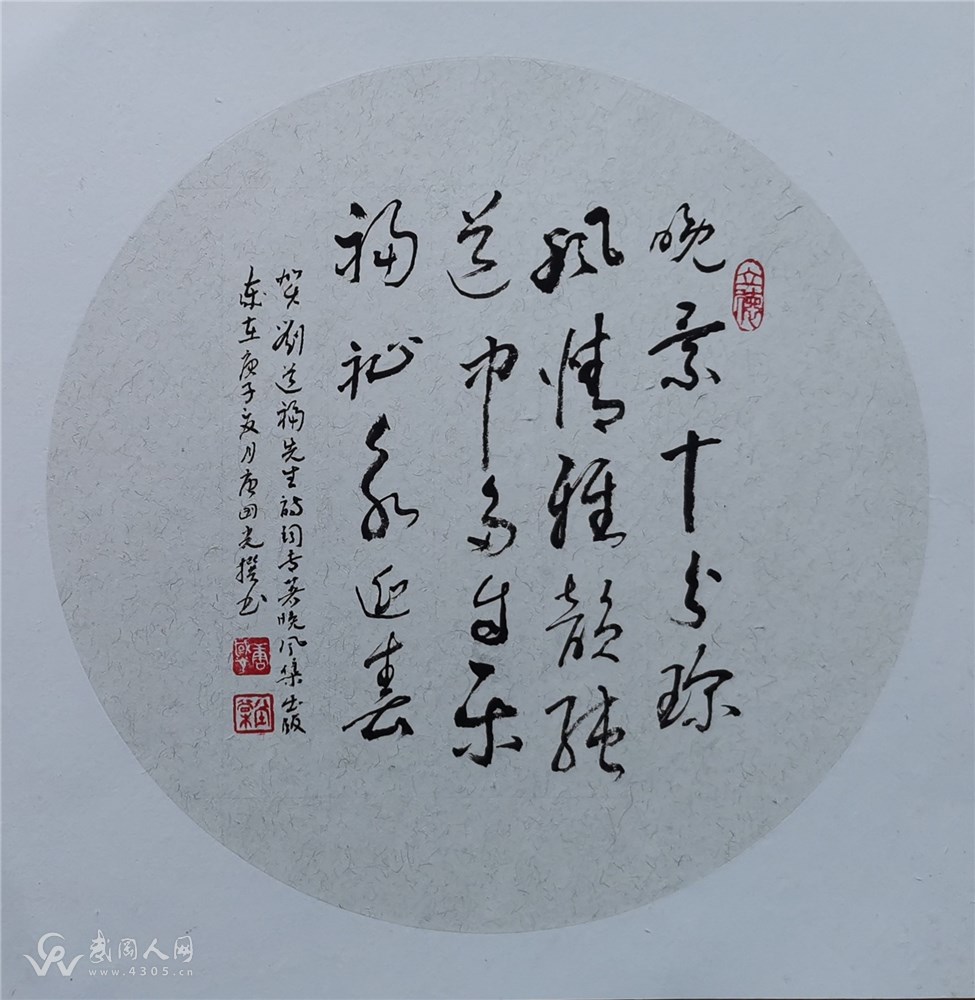 立德
晚景十分珍
風情雅韻纯
道中多自乐
福祉永迎春
贺劉道福先生诗词专著晚风集出版
岁在庚子夏月唐国光撰书
武冈人网
www.4305.cn